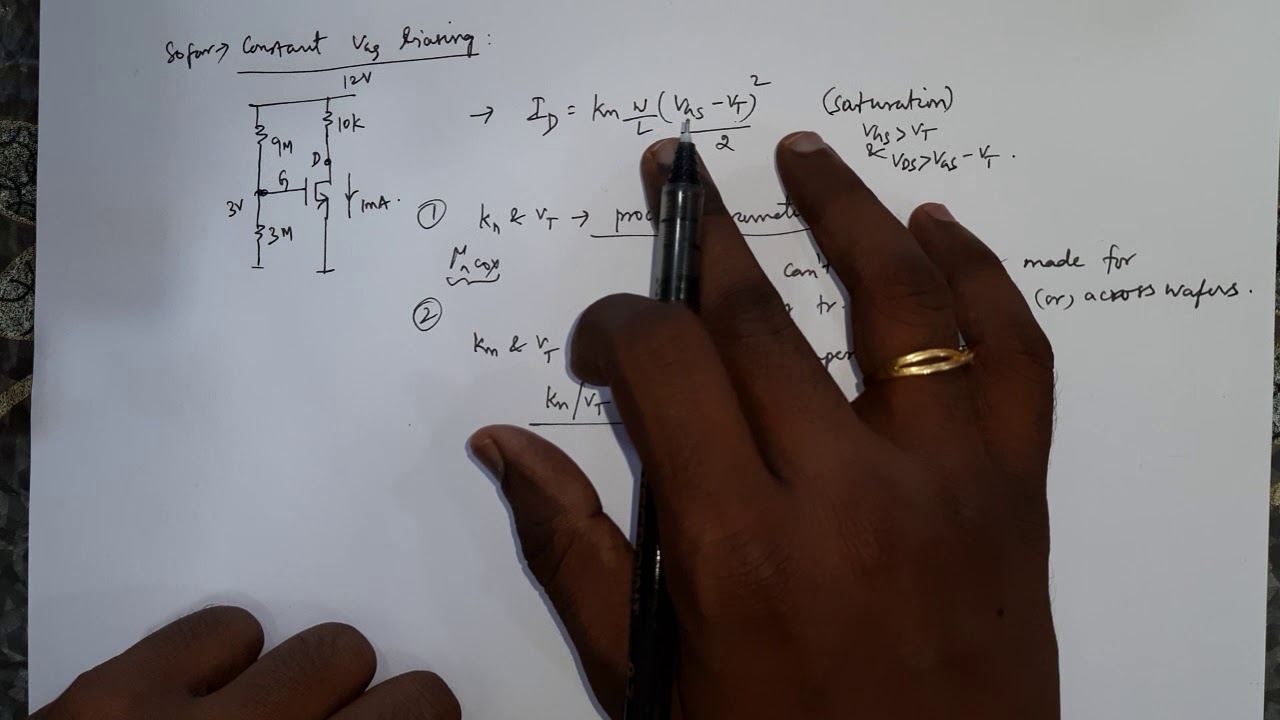 So far → Constant VGS biasing :
12V
10K
9M
D
G
3V
1mA.
3M
→ ID = Kn W/L (VGS - VT)²/2 (saturation)
VGS > VT
& VDS > VGS - VT.
① Kn & VT →
μn cox
can't made for
tr. (or) across wafers.
②
Kn & VT
Kn/VT